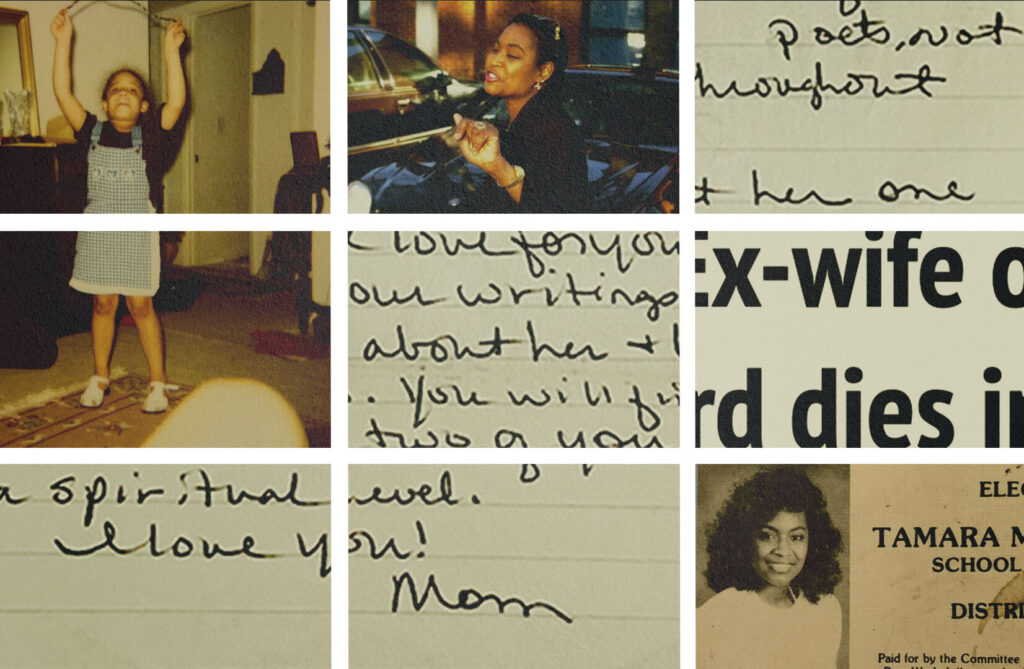 poets, not
throughout
her one
love for you
our writings
about her +
.. You will
two of you
Ex-wife o
rd dies in
a spiritual level.
I love you!
Mom
ELEC
TAMARA M
SCHOOL
DISTRI
Paid for by the Committee